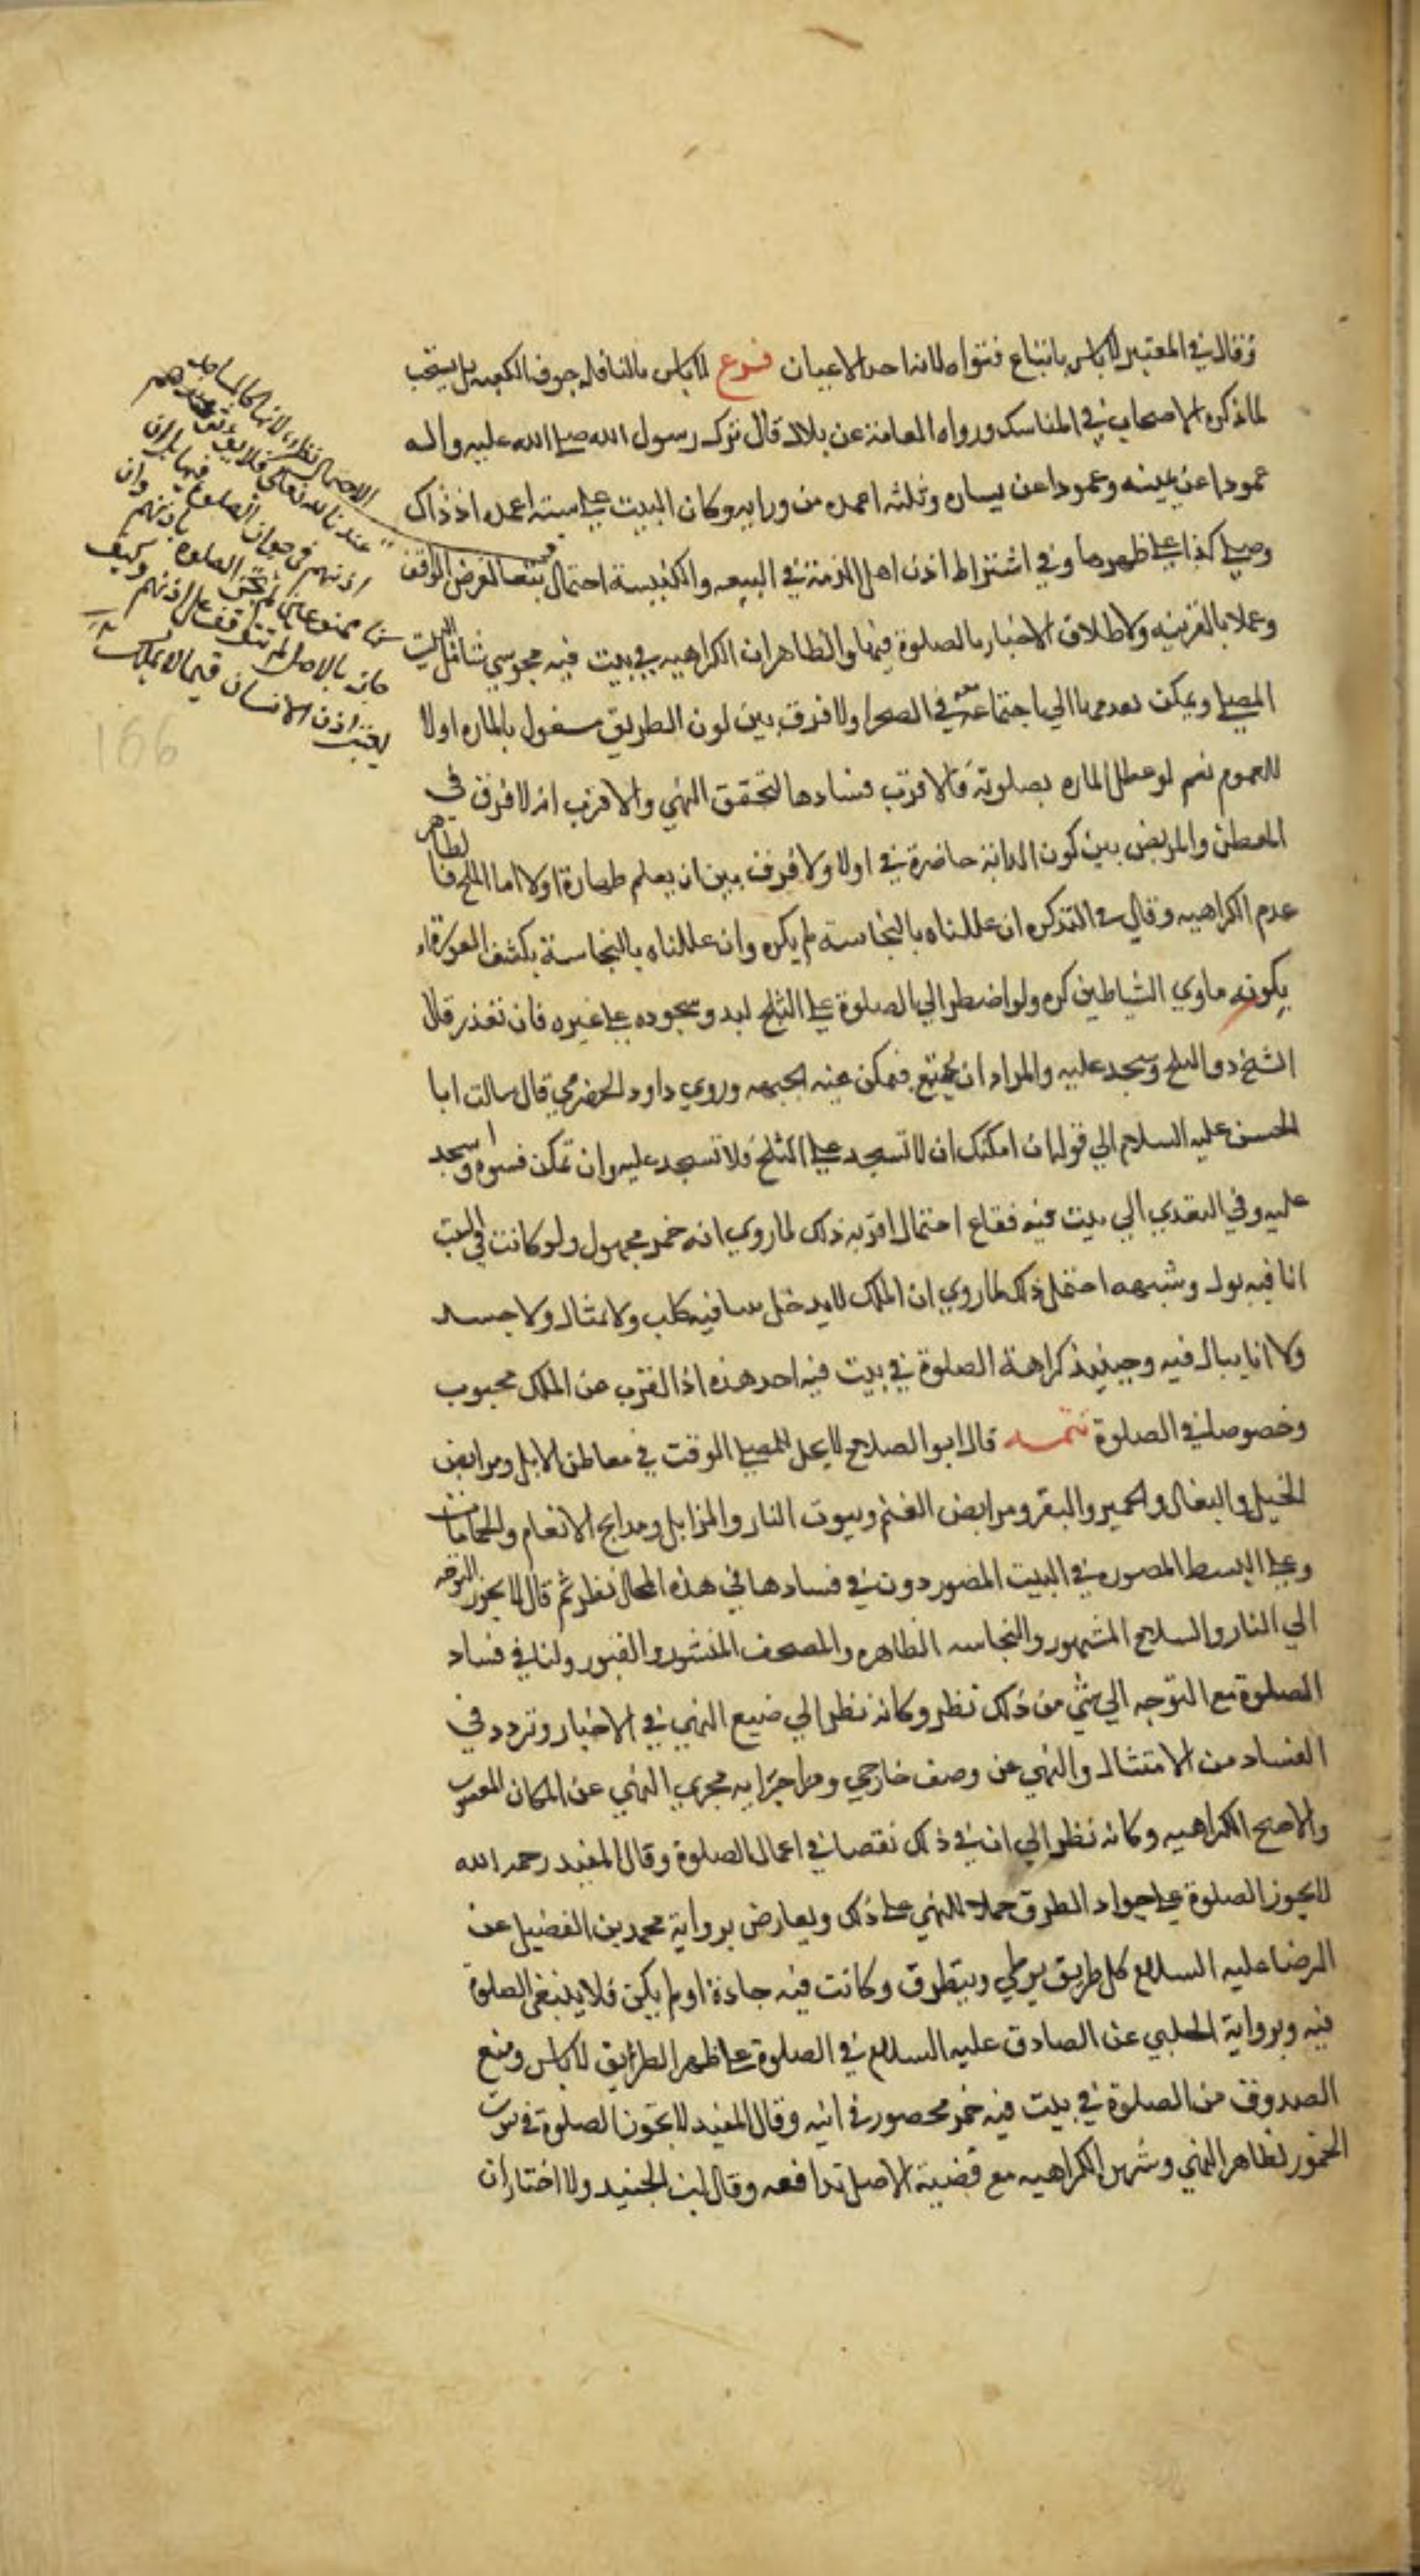 وقال في المعتبر لا باس باتباع فتواه لانه احد الاعيان فرع لا باس بالنافلة جوف الكعبه بل يستحب
لما ذكره الاصحاب في المناسك ورواه العامة عن بلال قال ترك رسول الله صلى الله عليه واله
عمودا عن يمينه وعمودا عن يساره وثلثه اعمده من ورايه وكان البيت على سته اعمده اذ ذاك
وصلى كذا على ظهرها وفي اشتراط اذن اهل الذمة في البيعه والكنيسة احتمال تبعا لغرض الواقف
وعملا بالقرينه ولاطلاق الاخبار بالصلوة فيها والظاهر ان الكراهيه في بيت فيه مجوسي شامل لبيت
المصلي ويمكن تعديها الي اجتماعه معه في الصحرا ولا فرق بين كون الطريق مشغول بالماره اولا
للعموم نعم لو عطل الماره بصلوته فالاقرب فسادها لتحقق النهي والاقرب انه لا فرق في
المعطن والمربض بين كون الدابة حاضرة في اولا ولا فرق بين ان يعلم طهارة اولا اما الثلج فالظاهر
عدم الكراهيه وقال في التذكره ان عللناه بالنجاسة لم يكره وان عللناه بالنجاسة بكشف العورة او
بكونه ماوي الشياطين كره ولو اضطر الي الصلوة على الثلج لبد وسجوده على غيره فان تعذر قال
الشيخ دق الثلج وسجد عليه والمراد ان يجتمع فيمكن عنه الجبهه وروي داود الحضرمي قال سالت ابا
الحسن عليه السلام الي قوله ان امكنك ان لا تسجد على الثلج فلا تسجد عليه وان تمكن فسوه واسجد
عليه وفي التعدي الي بيت فيه فقاع احتمال اقربه ذلك لما روي انه خمر مجهول ولو كانت في البيت
انا فيه بول وشبهه احتمل ذلك لما روي ان الملك لا يدخل بيتا فيه كلب ولا تمثال ولا جسد
ولا انا يبال فيه وحينيذ كراهة الصلوة في بيت فيه احد هذه اذ القرب من الملك محبوب
وخصوصا في الصلوة تتمه قال ابو الصلاح لا يحل للمصلي الوقت في معاطن الابل ومرابض
الخيل والبغال والحمير والبقر ومرابض الغنم وبيوت النار والمزابل ومذابح الانعام والحمامات
وعلى البسط المصوره في البيت المصور دون في فسادها في هذه المحال نظر ثم قال لا يجوز التوجه
الي النار والسلاح المشهور والنجاسه الظاهره والمصحف المنشور والقبور ولنا في فساد
الصلوة مع التوجه الي شي من ذلك نظر وكانه نظر الي صيغ النهي في الاخبار وتردد في
الفساد من الامتثال والنهي عن وصف خارجي ومن اجرايه مجري النهي عن المكان المغصوب
والاصح الكراهيه وكانه نظر الي ان في ذلك نقصا في اعمال الصلوة وقال المفيد رحمه الله
لا يجوز الصلوة على جواد الطرق حملا للنهي على ذلك ويعارض برواية محمد بن الفضيل عن
الرضا عليه السلام كل طريق يوطي ويتطرق وكانت فيه جادة او لم يكن فلا ينبغي الصلوة
فيه وبرواية الحلبي عن الصادق عليه السلام في الصلوة على ظهر الطرايق لا باس ومنع
الصدوق من الصلوة في بيت فيه خمر محصور في انيه وقال المفيد لا تجوز الصلوة في بيوت
الخمور لظاهر النهي وشهره الكراهيه مع قضية الاصل تدافعه وقال ابن الجنيد ولا اختار ان
الاحتمال نظر لانها كالمساجد
عندنا لله تعالى فلا يتوقف عندهم
اذنهم في جواز الصلوة فيها بل ان
ممنوعا لم تجز الصلوة باذنهم وان
جايز بالاصل لم تتوقف على اذنهم وكيف
يعتبر اذن الانسان فيما لا يملك
166